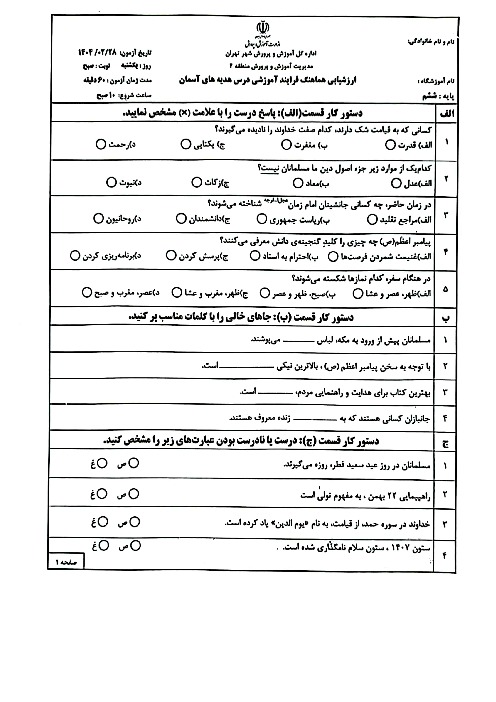 نام و نام خانوادگی:
نام آموزشگاه :
پایه : ششم
اداره کل آموزش و پرورش شهر تهران
مدیریت آموزش و پرورش منطقه ۲
ارزشیابی هماهنگ فرایند آموزشی درس هدیه های آسمان
تاریخ آزمون: ۱۴۰۴/۰۲/۲۸
روز: یکشنبه نوبت: صبح
مدت زمان آزمون: ۶۰ دقیقه
ساعت شروع: ۱۰ صبح
الف دستور کار قسمت(الف): پاسخ درست را با علامت (×) مشخص نمایید.
۱ کسانی که به قیامت شک دارند، کدام صفت خداوند را نادیده می‌گیرند؟
الف) قدرت ب) مغفرت ج) یکتایی د)رحمت
۲ کدام‌یک از موارد زیر جزء اصول دین ما مسلمانان نیست؟
الف)عدل ب)معاد ج)زکات د)نبوت
۳ در زمان حاضر، چه کسانی جانشینان امام زمان شناخته می‌شوند؟
الف)مراجع تقلید ب)ریاست جمهوری ج)دانشمندان د)روحانیون
۴ پیامبر اعظم(ص) چه چیزی را کلید گنجینه‌ی دانش معرفی می‌کنند؟
الف)غنیمت شمردن فرصت‌ها ب)احترام به استاد ج)پرسش کردن د)برنامه‌ریزی کردن
۵ در هنگام سفر، کدام نمازها شکسته می‌شوند؟
الف)ظهر، عصر و عشا ب)صبح، ظهر و عصر ج)ظهر، مغرب و عشا د)عصر، مغرب و صبح
ب دستور کار قسمت (ب): جاهای خالی را با کلمات مناسب پر کنید.
۱ مسلمانان پیش از ورود به مکه، لباس ________ می‌پوشند.
۲ با توجه به سخن پیامبر اعظم (ص) ، بالاترین نیکی ____________ است.
۳ بهترین کتاب برای هدایت و راهنمایی مردم، ________ است.
۴ جانبازان کسانی هستند که به __________ زنده معروف هستند.
ج دستور کار قسمت (ج): درست یا نادرست بودن عبارت‌های زیر را مشخص کنید.
۱ مسلمانان در روز عید سعید فطر، روزه می‌گیرند. ص غ
۲ راهپیمایی ۲۲ بهمن ، به مفهوم تولّی است ص غ
۳ خداوند در سوره حمد، از قیامت، به نام «یوم الدین» یاد کرده است. ص غ
۴ ستون ۱۴۰۷ ، ستون سلام نامگذاری شده است. . ص غ
صفحه ۱